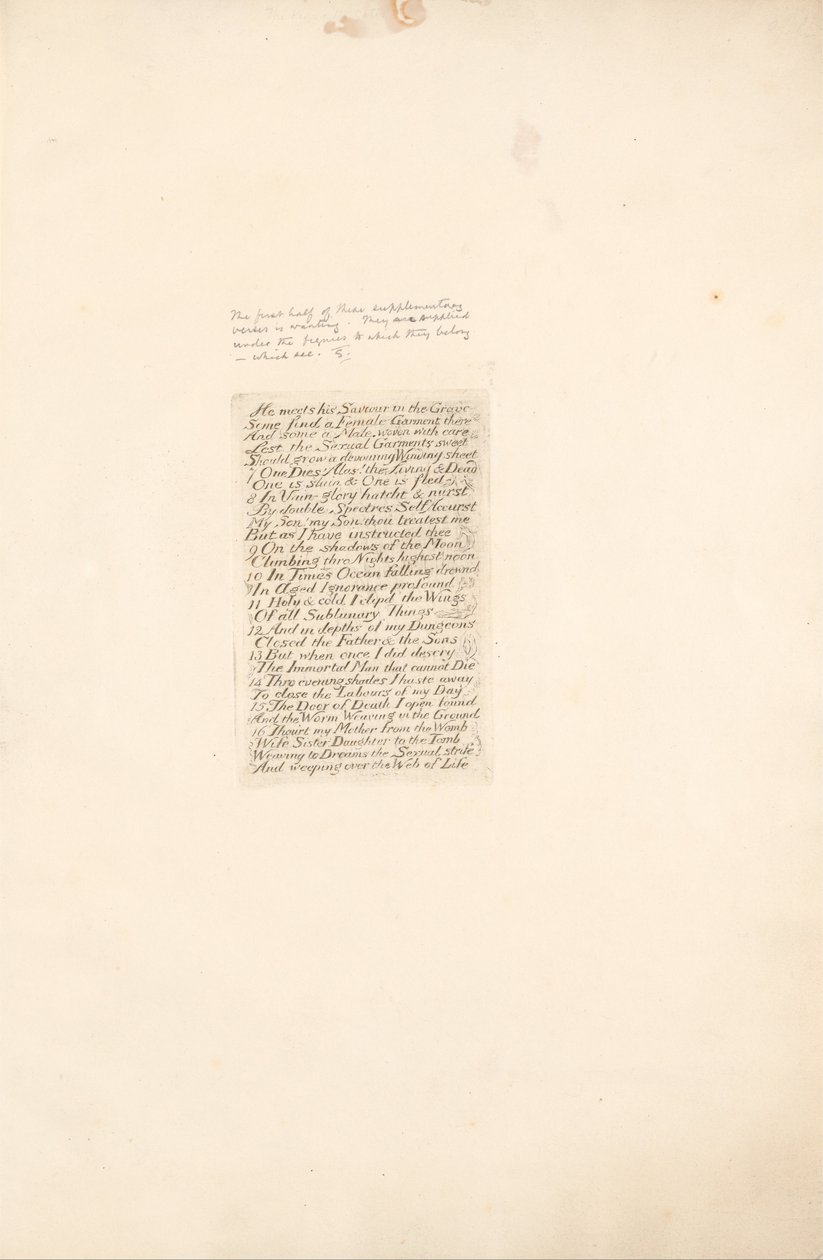 The first half of these supplementary
verses is wanting. They are supplied
under the figures to which they belong
— which see.
He meets his Saviour in the Grave
Some find a Female Garment there
And some a Male, woven with care
Lest the Sexual Garments sweet
Should grow a devouring Winding sheet
7 One Dies! Alas! the Living & Dead
One is slain & One is fled
8 In Vain-glory hatcht & nurst
By double Spectres Self Accurst
My Son! my Son! thou treatest me
But as I have instructed thee
9 On the shadows of the Moon
Climbing thro Nights highest noon
10 In Times Ocean falling drownd
In Aged Ignorance profound
11 Holy & cold I clipd the Wings
Of all Sublunary Things
12 And in depths of my Dungeons
Closed the Father & the Sons
13 But when once I did descry
The Immortal Man that cannot Die
14 Thro evening shades I haste away
To close the Labours of my Day
15 The Door of Death I open found
And the Worm Weaving in the Ground
16 Thourt my Mother from the Womb
Wife Sister Daughter to the Tomb
Weaving to Dreams the Sexual strife
And weeping over the Web of Life